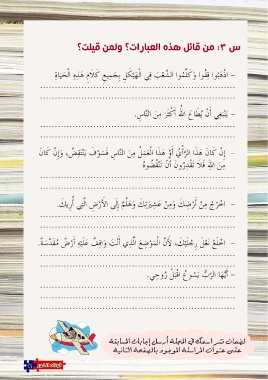 س ٣: من قائل هذه العبارات؟ ولمن قيلت؟
- اذْهَبُوا قِفُوا وَكَلِّمُوا الشَّعْبَ فِي الْهَيْكَلِ بِجَمِيعِ كَلَامِ هذِهِ الْحَيَاةِ
- يَنْبَغِي أَنْ يُطَاعَ اللهُ أَكْثَرَ مِنَ النَّاسِ.
- إِنْ كَانَ هذَا الرَّأْيُ أَوْ هذَا الْعَمَلُ مِنَ النَّاسِ فَسَوْفَ يَنْتَقِضُ، وَإِنْ كَانَ
مِنَ اللهِ فَلَا تَقْدِرُونَ أَنْ تَنْقُضُوهُ
- اخْرُجْ مِنْ أَرْضِكَ وَمِنْ عَشِيرَتِكَ وَهَلُمَّ إِلَى الْأَرْضِ الَّتِي أُرِيكَ.
- اخْلَعْ نَعْلَ رِجْلَيْكَ، لأَنَّ الْمَوْضِعَ الَّذِي أَنْتَ وَاقِفٌ عَلَيْهِ أَرْضٌ مُقَدَّسَةٌ.
- أَيُّهَا الرَّبُّ يَسُوعُ اقْبَلْ رُوحِي.
لضمان نشر اسمك في المجلة أرسل إجابات المسابقة
على عنوان المراسلة الموجود بالصفحة الثانية